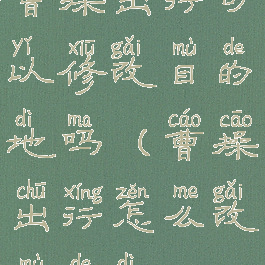 曹操出行可
yǐ xiū gǎi mù de
以修改目的
dì ma cáo cāo
地吗（曹操
chū xíng zěn me gǎi
出行怎么改
mù de dì